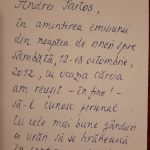 Andrei Partoș,
în amintirea emisiunii
din noaptea de vineri spre
sâmbătă, 12-13 octombrie,
2012, cu ocazia căreia
am reușit - în fine! -
să-l cunosc personal...
Cu cele mai bune gânduri
și urări să se hrănească